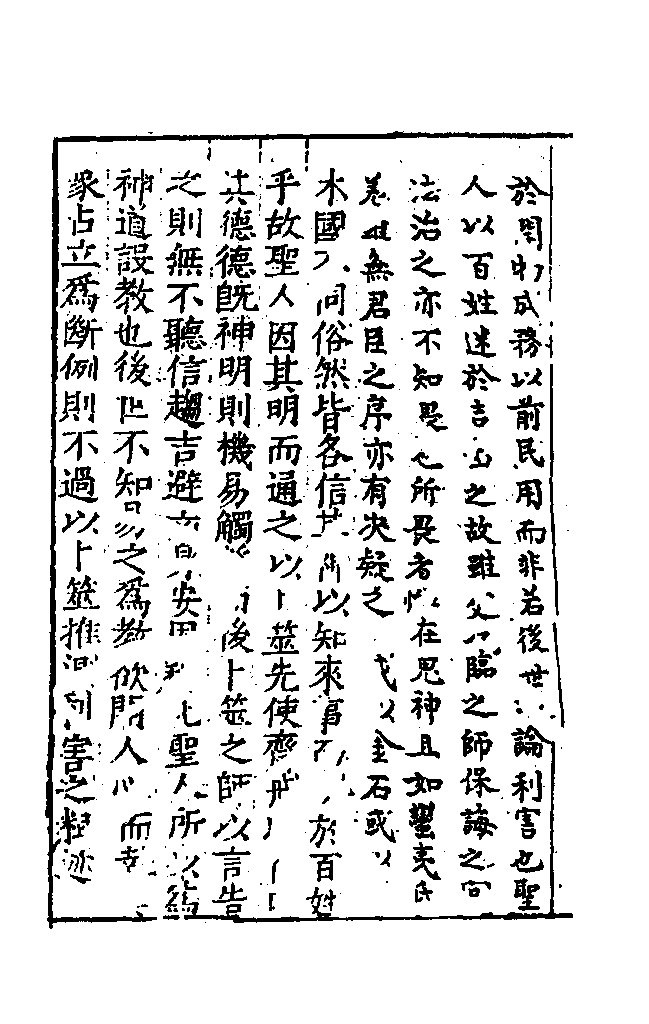 於開物成務以前民用而非若後世論利害也聖
人以百姓迷於吉凶之故雖父以臨之師保誨之官
法治之亦不知畏也所畏者惟在鬼神且如蠻夷氏
羌雖無君臣之序亦有决疑之 或以金石或以
木國不同俗然皆各信其 以知來事 於百姓
乎故聖人因其明而通之以卜筮先使齊戒
其德德旣神明則機易觸 而後卜筮之師以言告
之則無不聽信趨吉避 聖人所以
神道設教也後世不知易之爲教 人心而
象占立爲斷例則不過以卜筮推 利害之粗迹